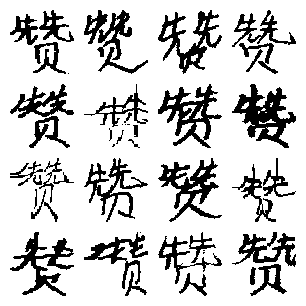 赞赞赞赞
赞赞赞赞
赞赞赞赞
赞赞赞赞